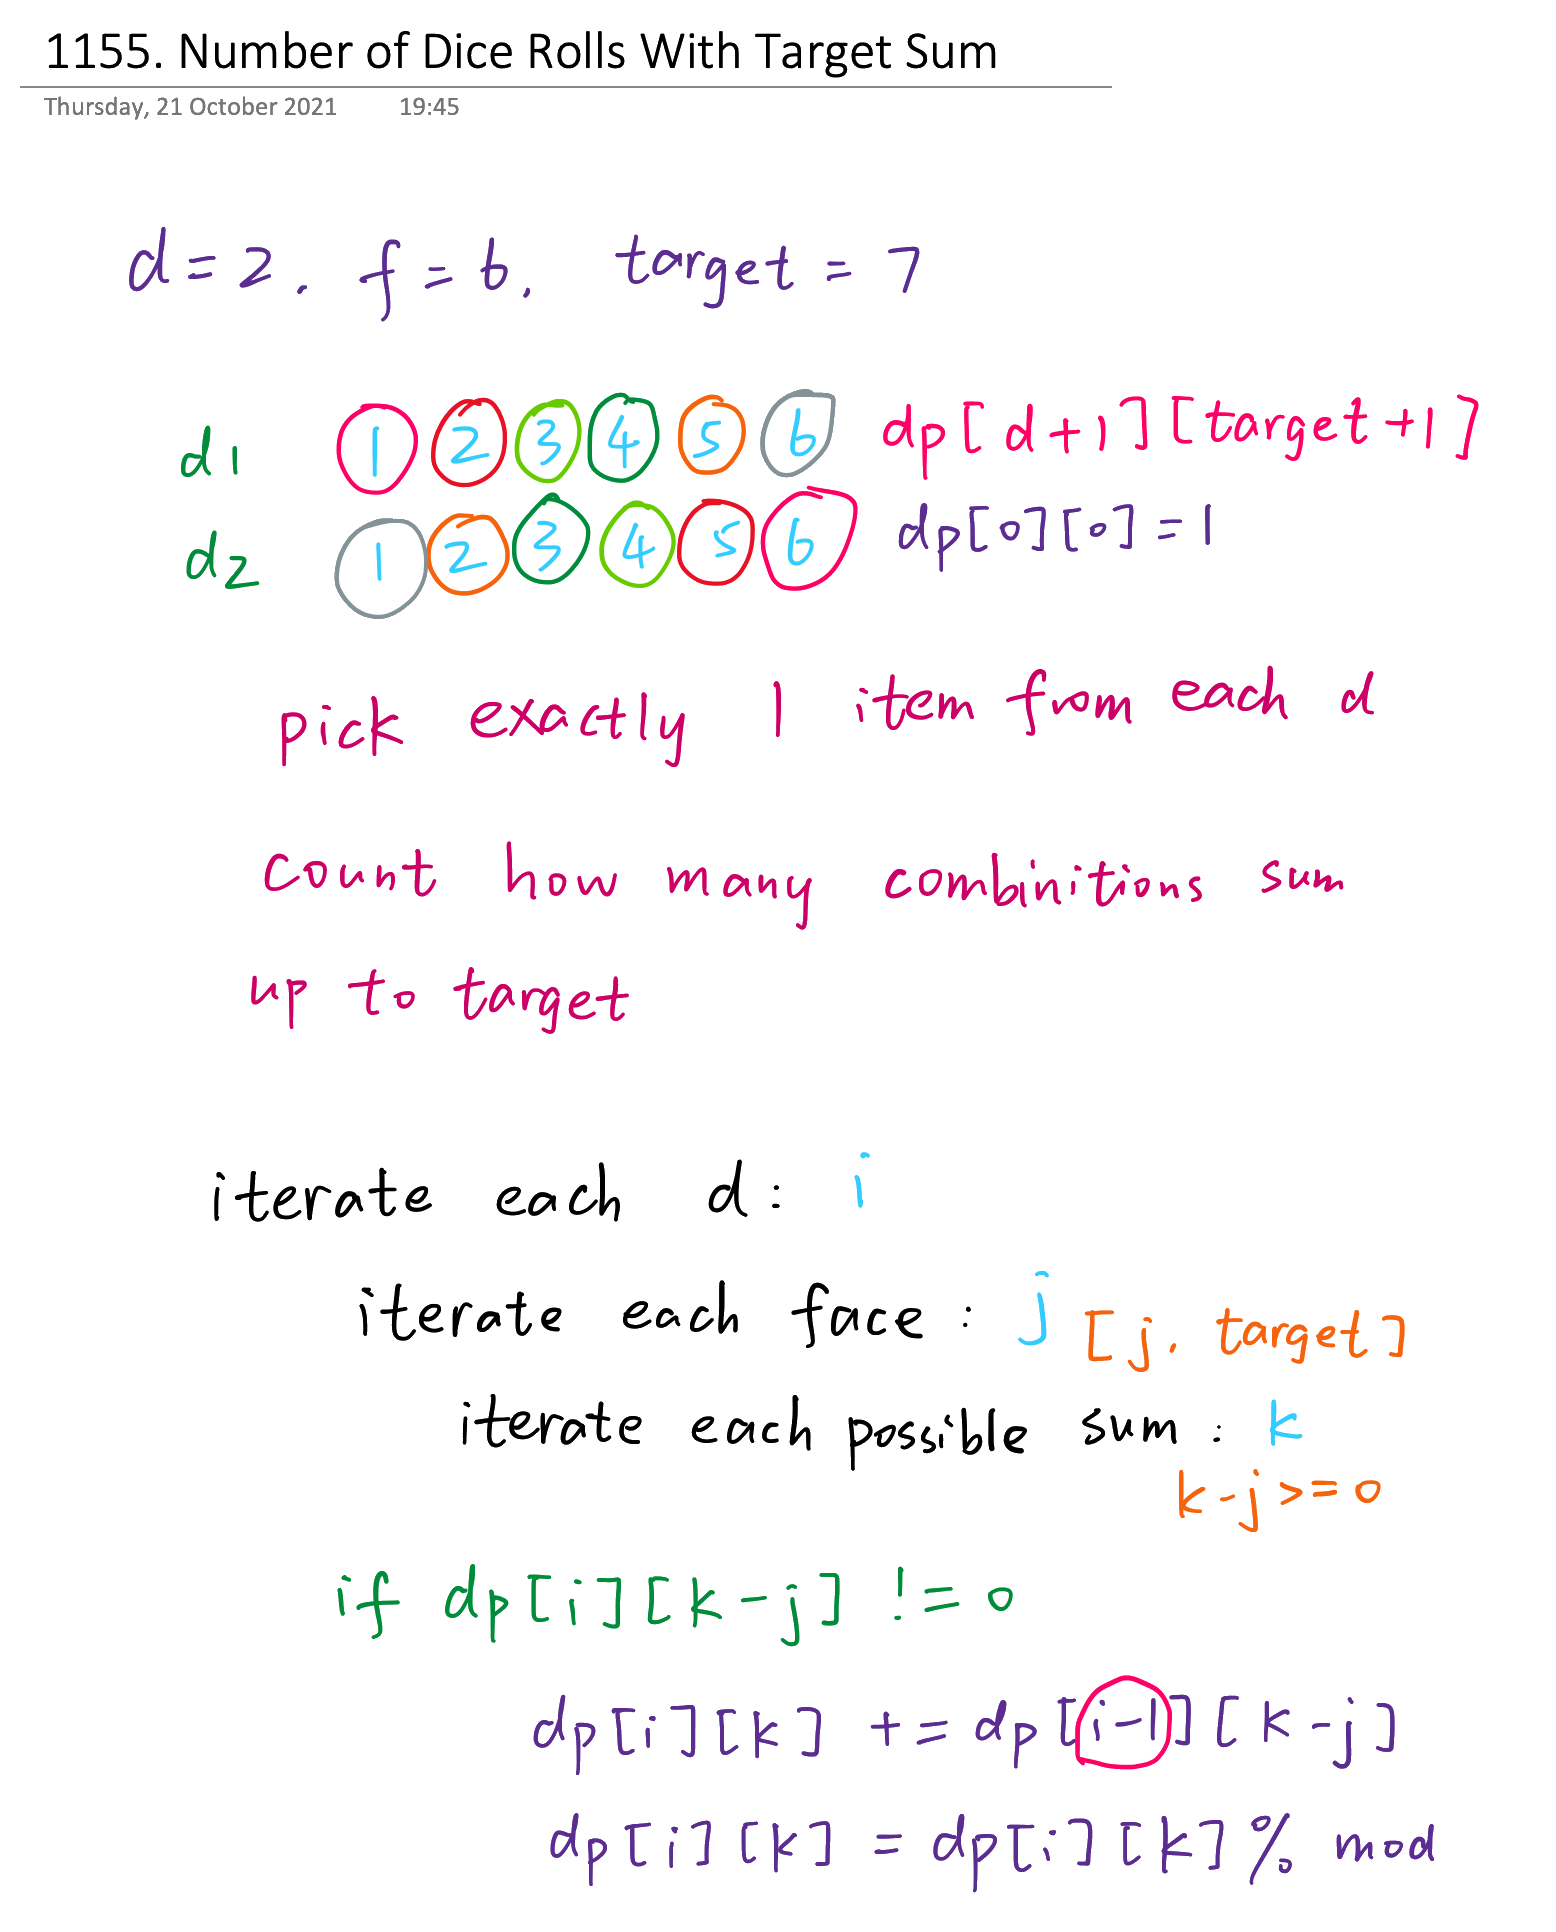 1155. Number of Dice Rolls With Target Sum
Thursday, 21 October 2021 19:45
d = 2. f = 6, target = 7
d1 1 2 3 4 5 6 dp[d+1][target+1]
d2 1 2 3 4 5 6 dp[0][0] = 1
pick exactly 1 item from each d
count how many combinitions sum
up to target
iterate each d: i
iterate each face: j [j, target]
iterate each possible sum: k
k-j >= 0
if dp[i][k-j] != 0
dp[i][k] += dp[i-1][k-j]
dp[i][k] = dp[i][k] % mod